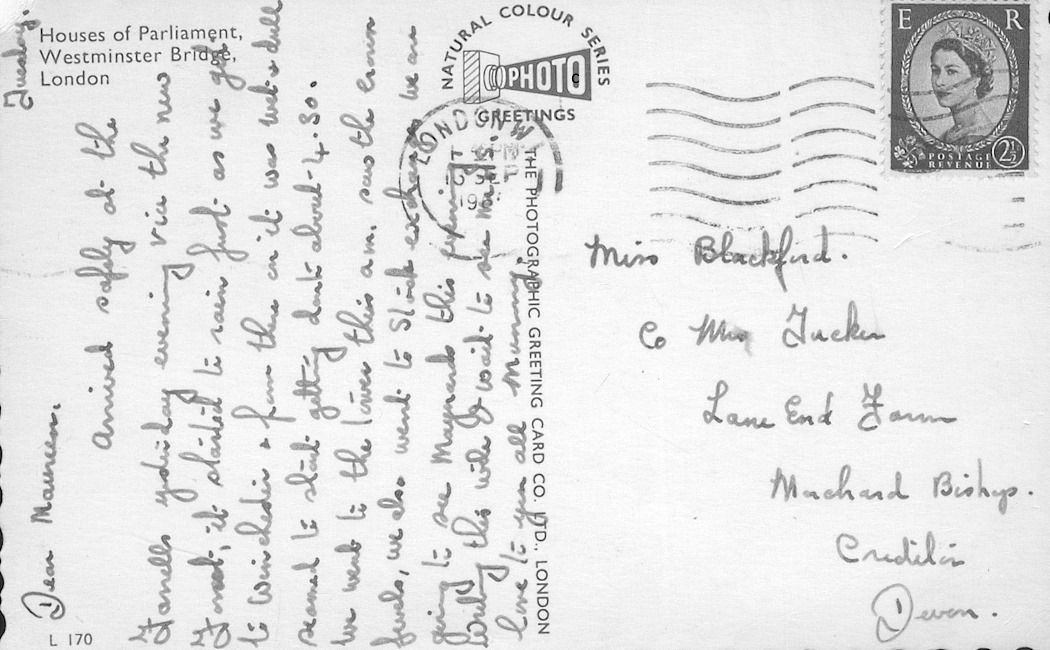 Houses of Parliament,
Westminster Bridge,
London
NATURAL COLOUR SERIES
PHOTO
GREETINGS
E R
POSTAGE
REVENUE
2½
LONDON W
SEP
19
THE PHOTOGRAPHIC GREETING CARD CO. LTD., LONDON
Tuesday.
Dear Maureen,
Arrived safely at the
Farrells yesterday evening via the new
Forest, it started to rain just as we got
to Winchester & from then on it was wet & dull
seemed to start getting dark about 4.30.
We went to the Tower this a.m. saw the crown
jewels, we also went to Stock exchange we are
going to see Maynards this evening. I'm
writing this while I wait to see Mr
love to you all Mummy.
Miss Blackford.
Co Mrs Tucker
Lane End Farm
Morchard Bishop.
Crediton
Devon.
L 170